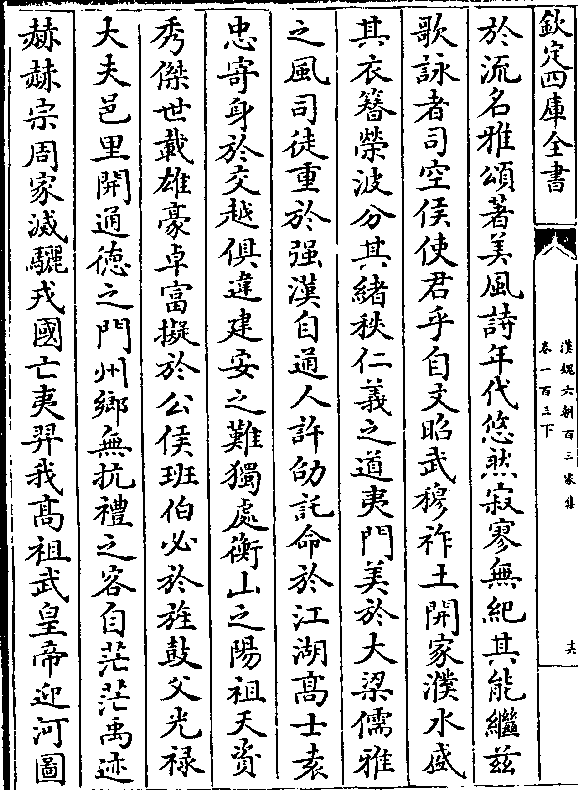 欽定四庫全書
漢魏六朝百三家集
卷一百三下
共
於流名雅頌著美風詩年代悠然寂寥無紀其能繼茲
歌詠者司空侯使君乎自文昭武穆祚土開家濮水盛
其衣簪滎波分其緒秩仁義之道夷門美於大梁儒雅
之風司徒重於强漢自通人許劭託命於江湖高士袁
忠寄身於交越俱違建安之難獨處衡山之陽祖天資
秀傑世載雄豪卓富擬於公侯班伯必於旌鼓父光禄
大夫邑里開通德之門州鄉無抗禮之客自茫茫禹迹
赫赫宗周家滅驪戎國亡夷羿我髙祖武皇帝迎河圖